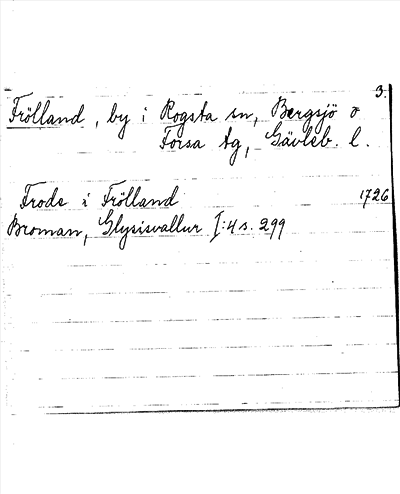 3.
Frölland, by i Rogsta sn, Bergsjö o
Forsa tg, Gävleb. l.
Frode i Frölland 1726
Broman, Glysisvallur I:4 s. 299